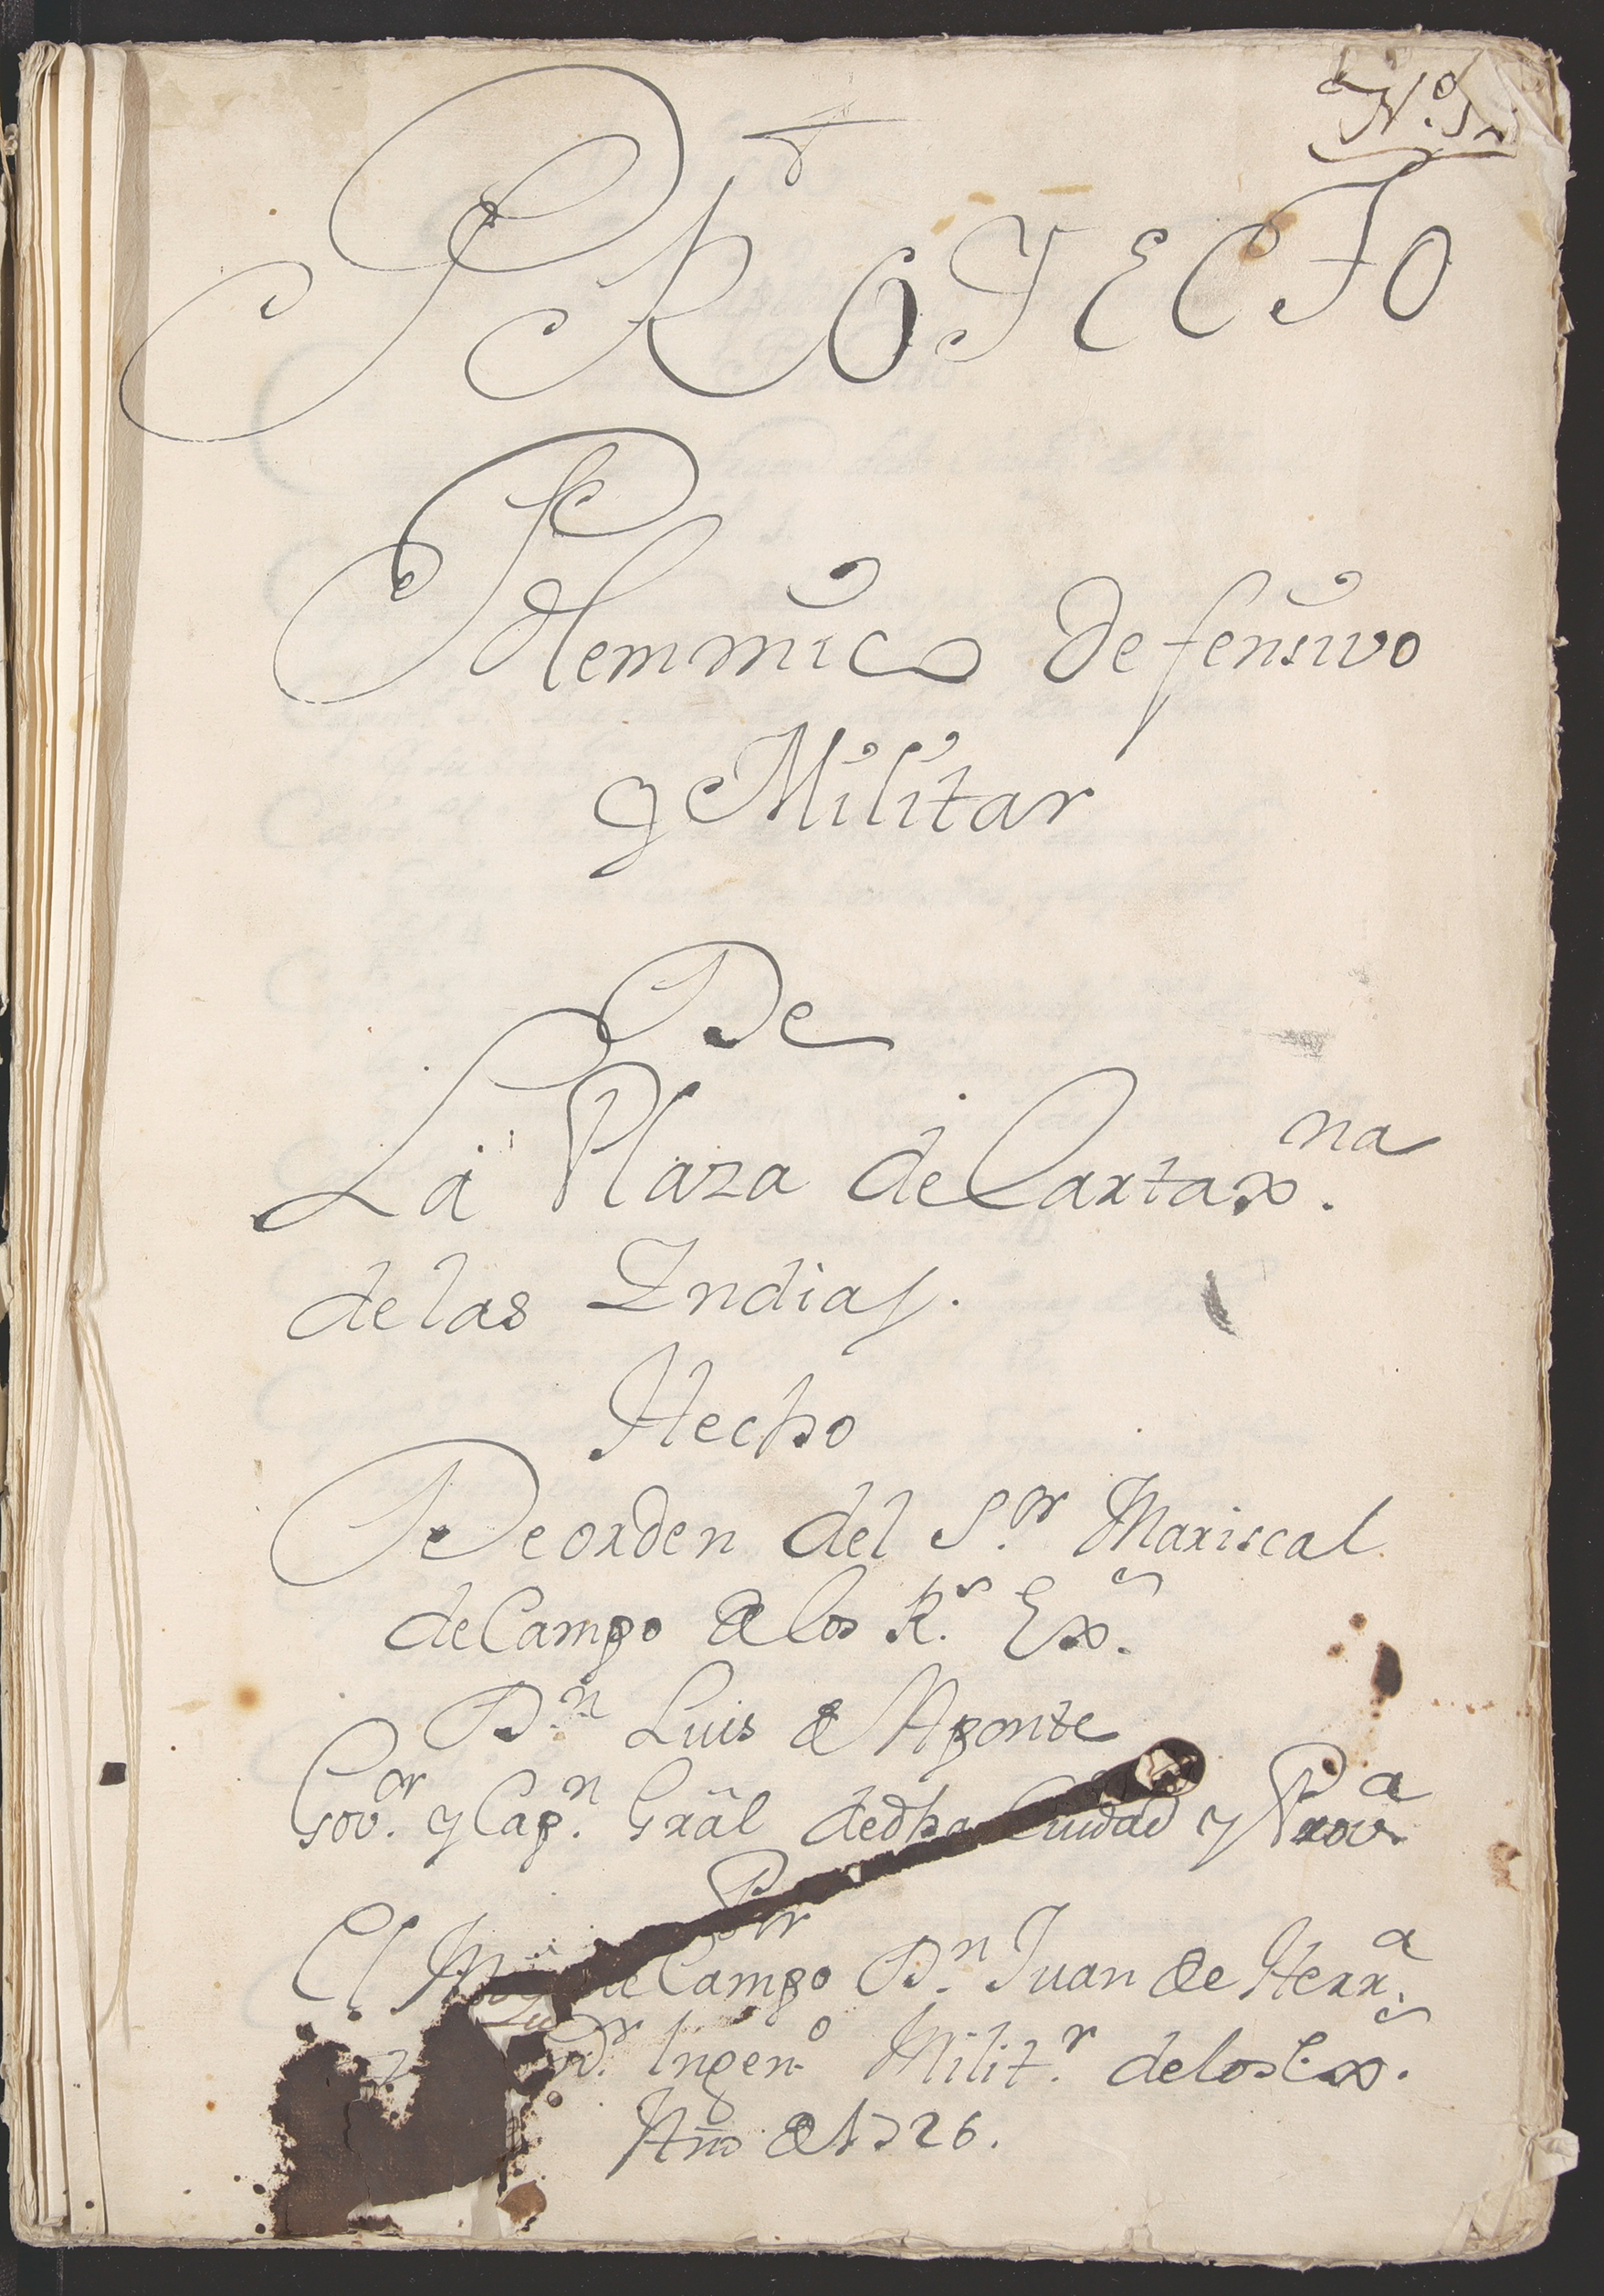 N.º 5
PROYECTO
Polemmico Defensivo
y Militar
De
La Plaza de Cartax.na
de las Indias.
Hecho
De orden del S.or Mariscal
de Campo de los R.s Ex.s
D.n Luis de Aponte
Gov.or y Cap.n Grãl de dha Ciudad y Prov.a
Por
El de Campo D.n Juan de Herr.a
Ingen.o Milit.r de los Ex.s
Año de 1726.